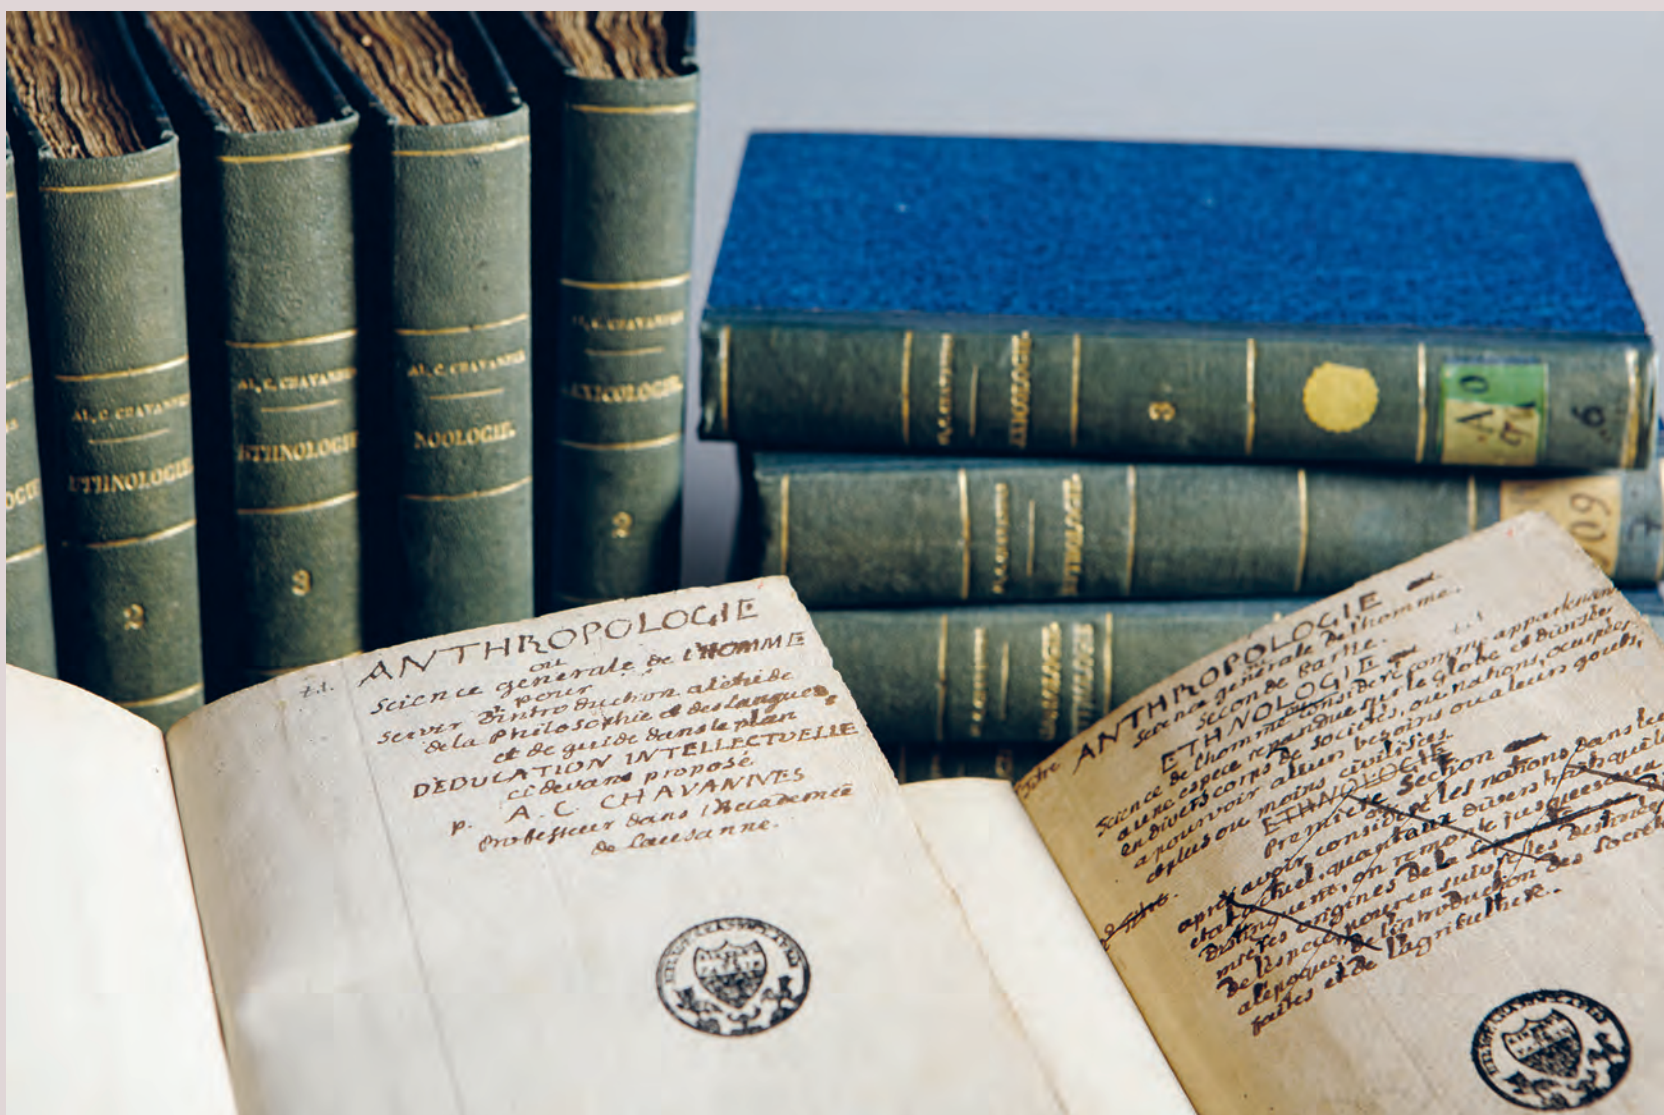 AL. C. CHAVANNES
ETHNOLOGIE
2
AL. C. CHAVANNES
ETHNOLOGIE
3
AL. C. CHAVANNES
NOOLOGIE.
AL. C. CHAVANNES
LEXICOLOGIE.
2
3
A
6
609
ANTHROPOLOGIE
ou
Science generale de l'HOMME
pour
servir d'introduction a l'etude
de la Philosophie et des langues,
et de guide dans le plan
D'EDUCATION INTELLECTUELLE
ci devant proposé
p. A. C. CHAVANNES
Professeur dans l'Academie
de Lausanne.
Titre ANTHROPOLOGIE
Science générale de l'homme.
Seconde Partie.
ETHNOLOGIE
Science de l'homme considéré comme appartenant
a une espece repandue sur le globe et divisée
en divers corps de sociétés, ou nations, occupées
a pourvoir a leurs besoins ou a leurs gouts,
et plus ou moins civilisées.
ETHNOLOGIE
Premiere Section
après avoir considéré les nations dans leur
etat actuel, quant aux divers
distinguent, on remonte jusques aux
origines de la
de l'espece pour en suivre les destinées
a l'epoque de l'introduction des Sociétés
faites et de l'agriculture.